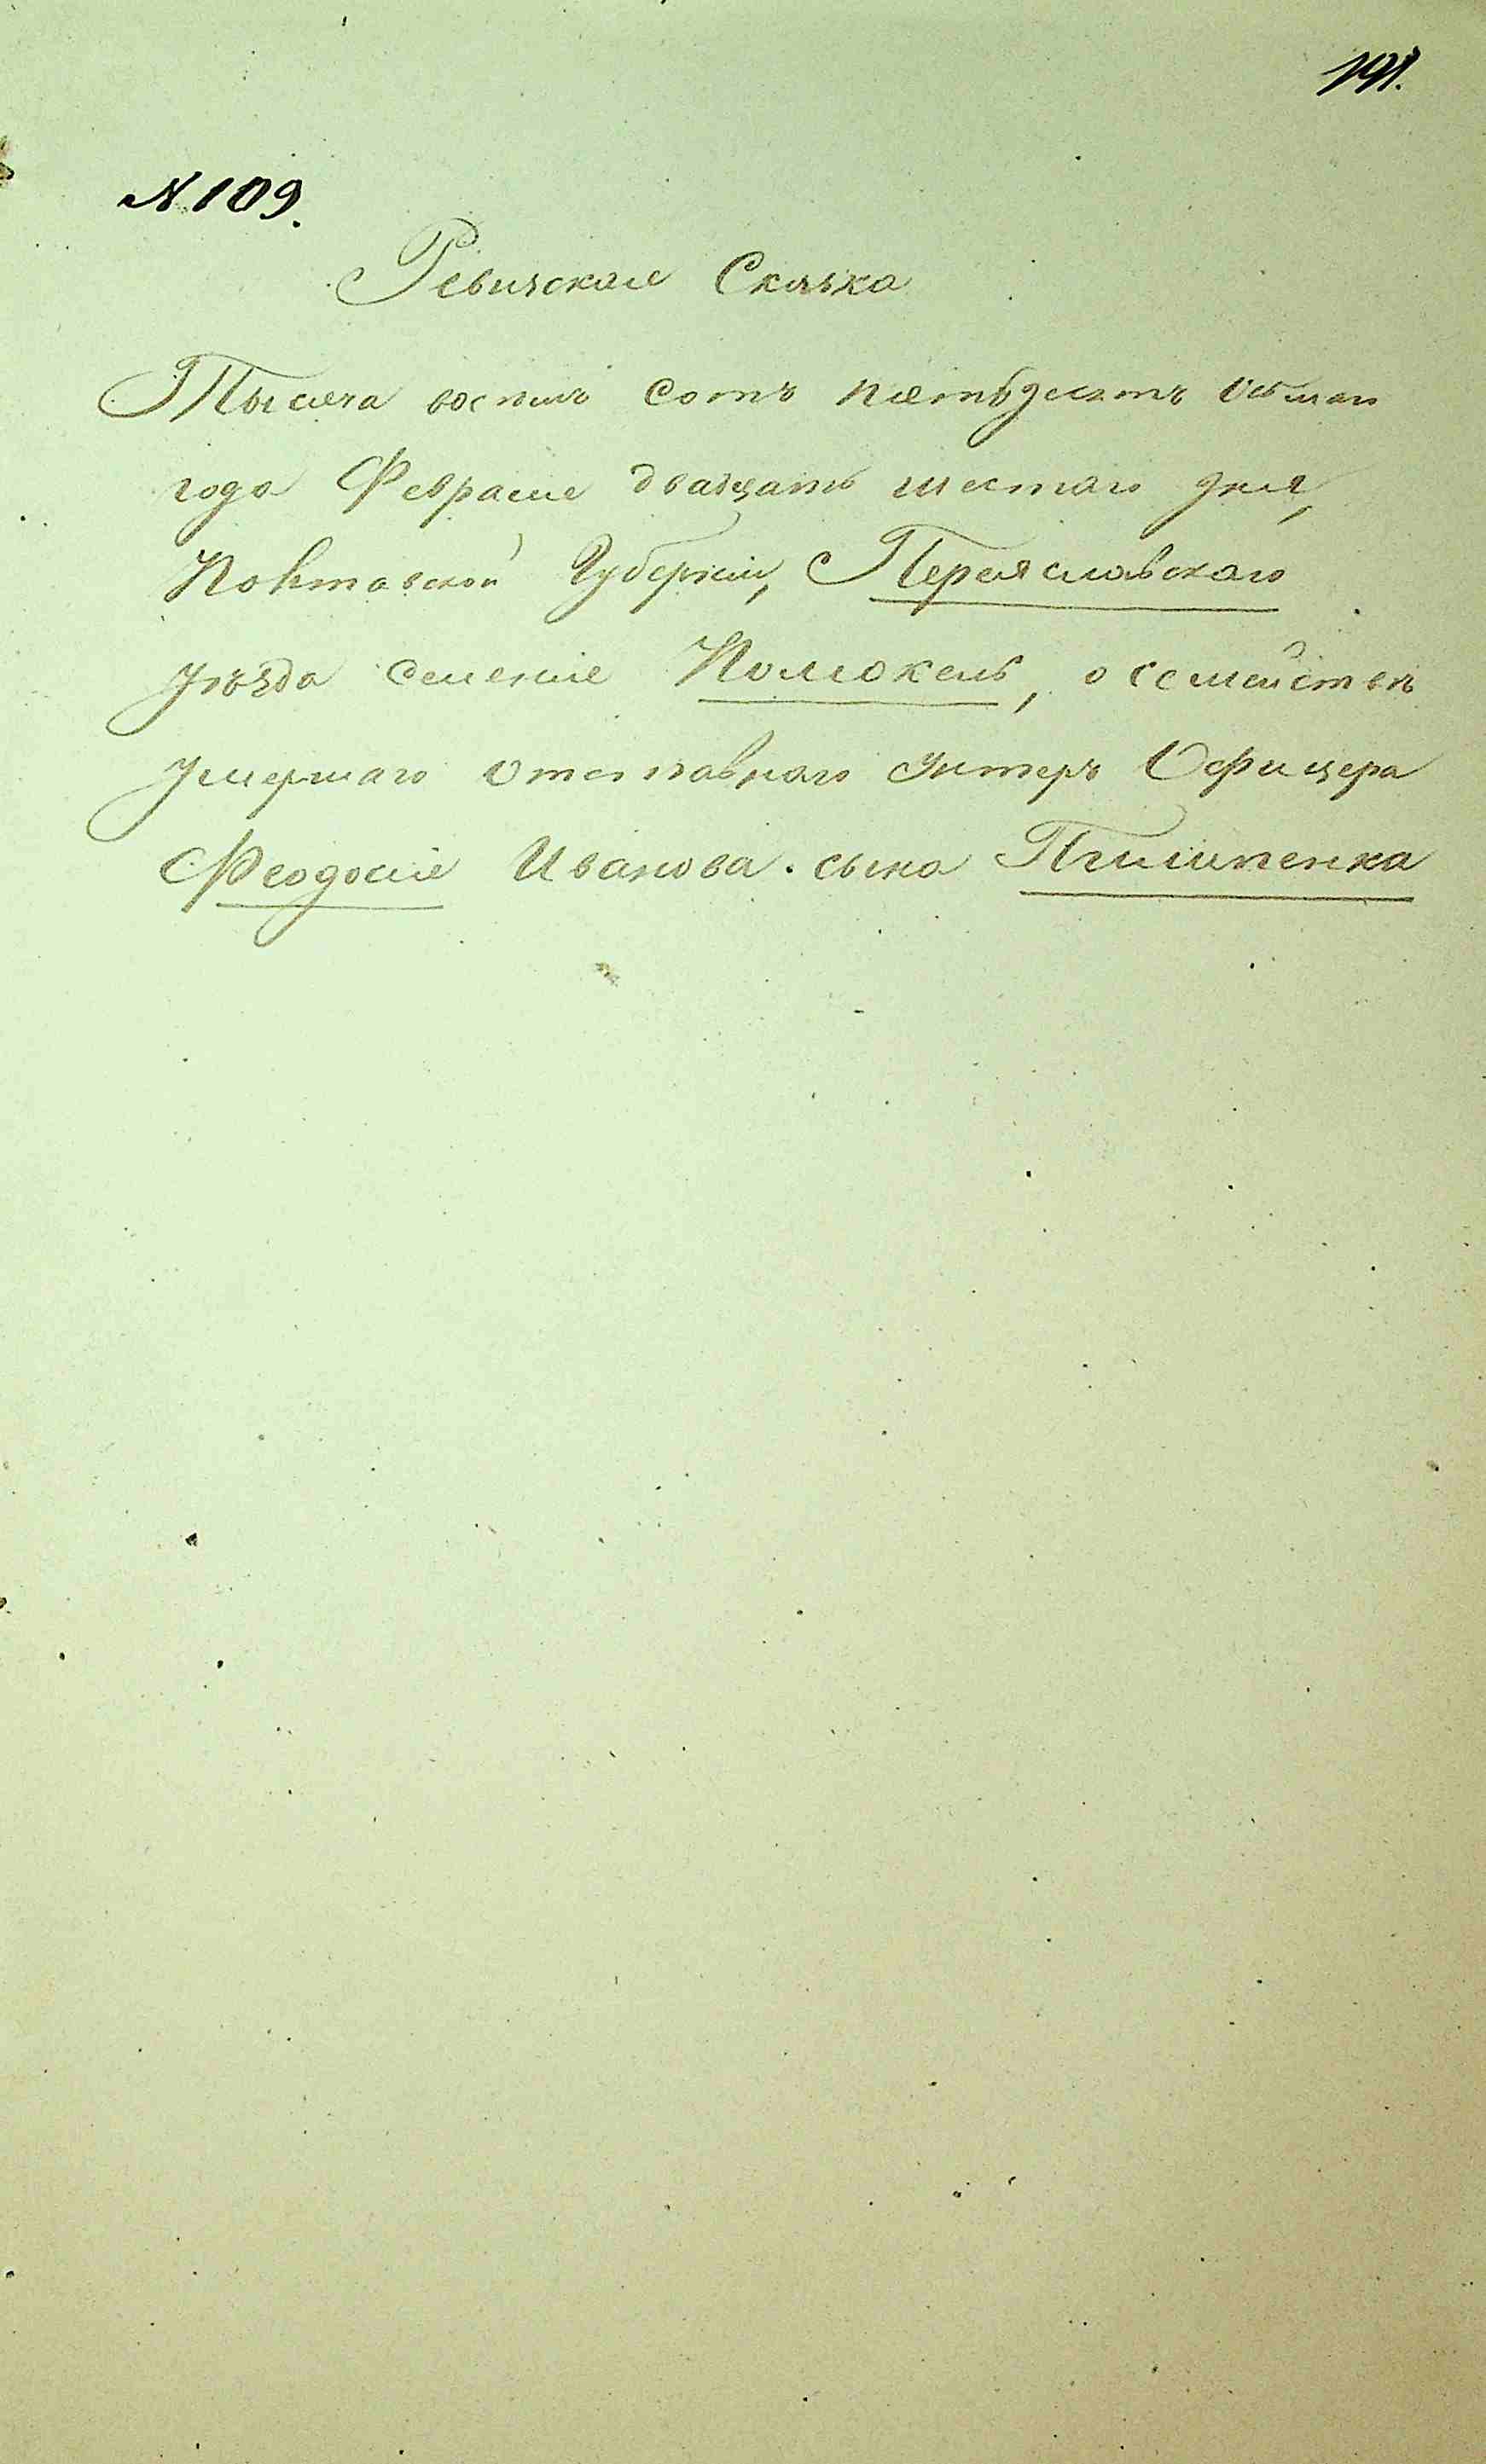 191.
N. 109.
Ревизская Сказка
Тысяча восемь сотъ пятьдесятъ осьмаго
года Февраля двадцать шестаго дня,
Полтавской Губерніи, Переяславскаго
уѣзда селенія Помокель, о семействѣ
умершаго отставнаго Унтеръ Офицера
Феодосія Иванова сына Пилипенка